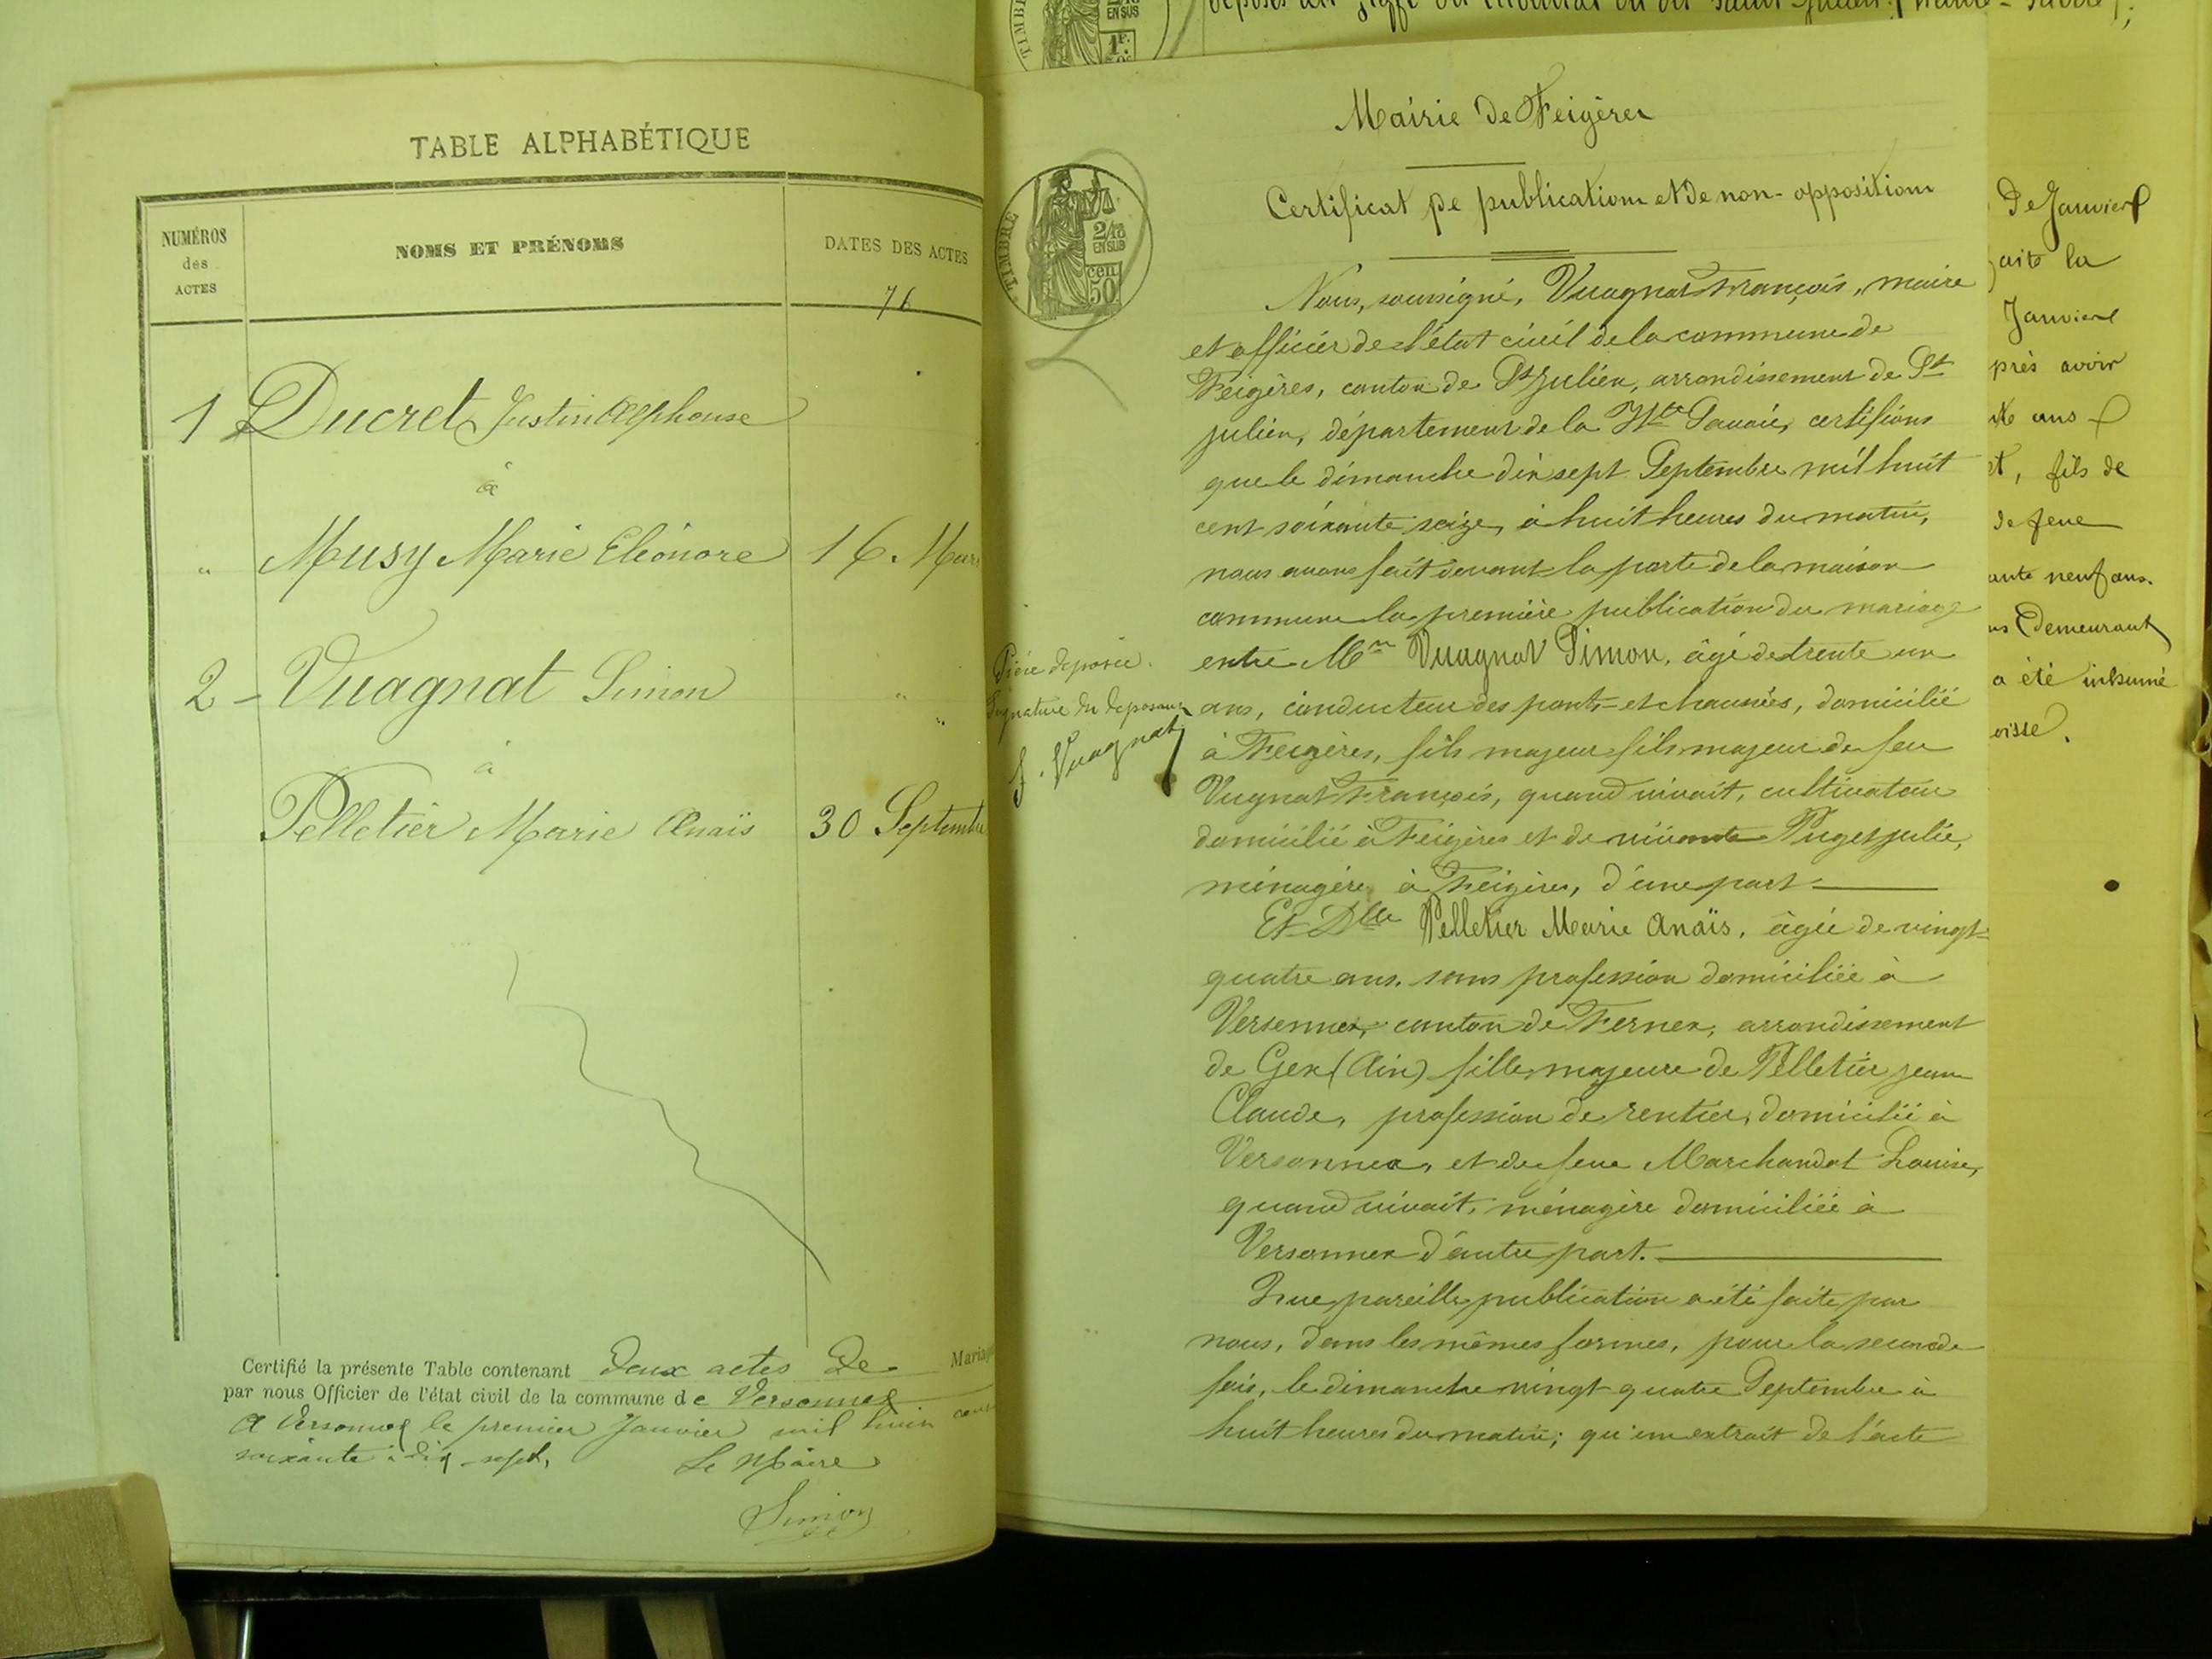 TABLE ALPHABÉTIQUE
NUMÉROS
des
ACTES
NOMS ET PRÉNOMS
DATES DES ACTES
76
1 Ducret Justin Alphonse
à
" Musy Marie Eléonore 16 Mars
2 - Vuagnat Simon "
"
à
Pelletier Marie Anaïs 30 Septembre
Certifié la présente Table contenant deux actes de Mariage
par nous Officier de l'état civil de la commune de Versonnex
A Versonnex le premier Janvier mil huit cent
soixante-dix-sept,
Le Maire
Simon
EN SUS
1F.
TIMBRE
2/10
EN SUS
cen.
50
Mairie de Feigères
Certificat de publication et de non-opposition
Nous, soussigné, Vuagnat François, maire
et officier de l'état civil de la commune de
Feigères, canton de St Julien, arrondissement de St
Julien, département de la Hte Savoie, certifions
que le dimanche dix sept Septembre mil huit
cent soixante seize, à huit heures du matin,
nous avons fait devant la porte de la maison
commune la première publication du mariage
entre Mr Vuagnat Simon, âgé de trente un
ans, conducteur des ponts-et chaussées, domicilié
à Feigères, fils majeur fils majeur de feu
Vugnat François, quand vivait, cultivateur
domicilié à Feigères et de vivante Puget Julie,
ménagère à Feigères, d'une part
Et Dlle Pelletier Marie Anaïs, âgée de vingt-
quatre ans, sans profession domiciliée à
Versonnex, canton de Fernex, arrondissement
de Gex (Ain) fille majeure de Pelletier Jean
Claude, profession de rentier, domicilié à
Versonnex, et de feue Marchandot Louise,
quand vivait, ménagère domiciliée à
Versonnex d'autre part.
Que pareille publication a été faite par
nous, dans les mêmes formes, pour la seconde
fois, le dimanche vingt quatre Septembre à
huit heures du matin; qu'un extrait de l'acte
Pièce déposée.
Signature du déposant
f. Vuagnat
De Janvier
aite la
Janvier
près avoir
ans
t, fils de
de feue
ante neuf ans.
ns Demeurant
a été inhumé
oisse.